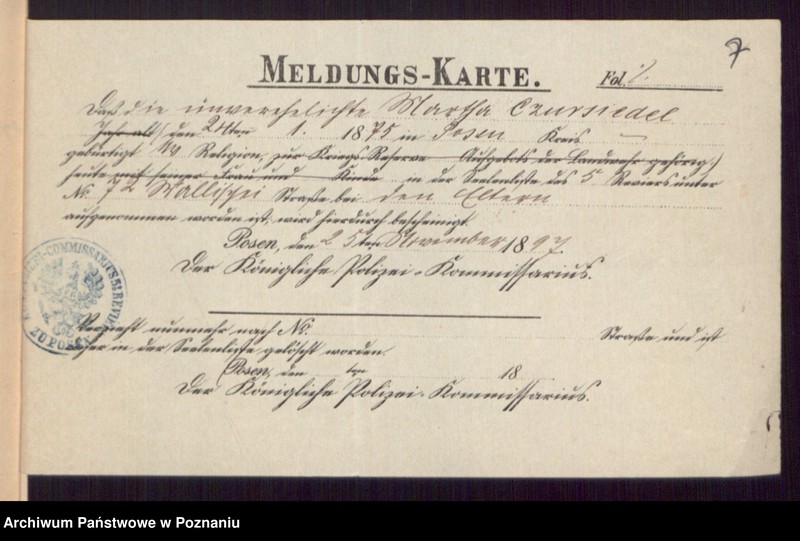 7
MELDUNGS-KARTE. Fol.
Daß die unverehelichte Martha Czursiedel
Jahr alt, den 24ten 1. 1875 in Posen Kreis —
gebürtigt Religion, zur Kriegs-Reserve Aufgebots der Landwehr gehörig,
heute mit seiner Frau und Kinde in der Seelenliste des 5 Reviers unter
No. 72 Wallischei Straße bei den Eltern
aufgenommen worden ist, wird hierdurch bescheinigt.
Posen, den 25ten November 1897.
Der Königliche Polizei-Kommissarius.
COMMISSARIUS 5 REVIER
ZU POSEN
Verzieht nunmehr nach No. Straße und ist
daher in der Seelenliste gelöscht worden.
Posen, den ten 18
Der Königliche Polizei-Kommissarius.
Archiwum Państwowe w Poznaniu